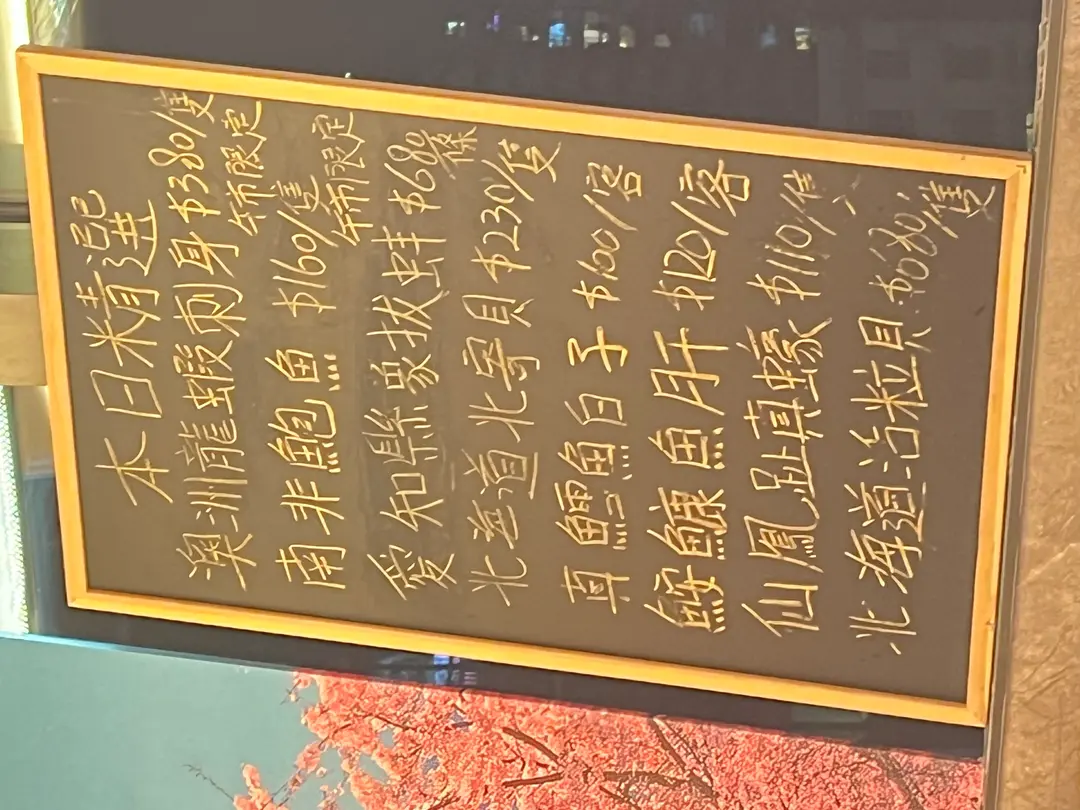 本日精選
澳洲龍蝦刺身 $380/隻
限定
南非鮑魚 $160/隻
限定
愛知縣象拔蚌 $680
條
北海道北寄貝 $230/隻
真鱈魚白子 $100/客
鮟鱇魚肝 $120/客
仙鳳趾真蠔 $110/隻
北海道活粒貝 $080/隻